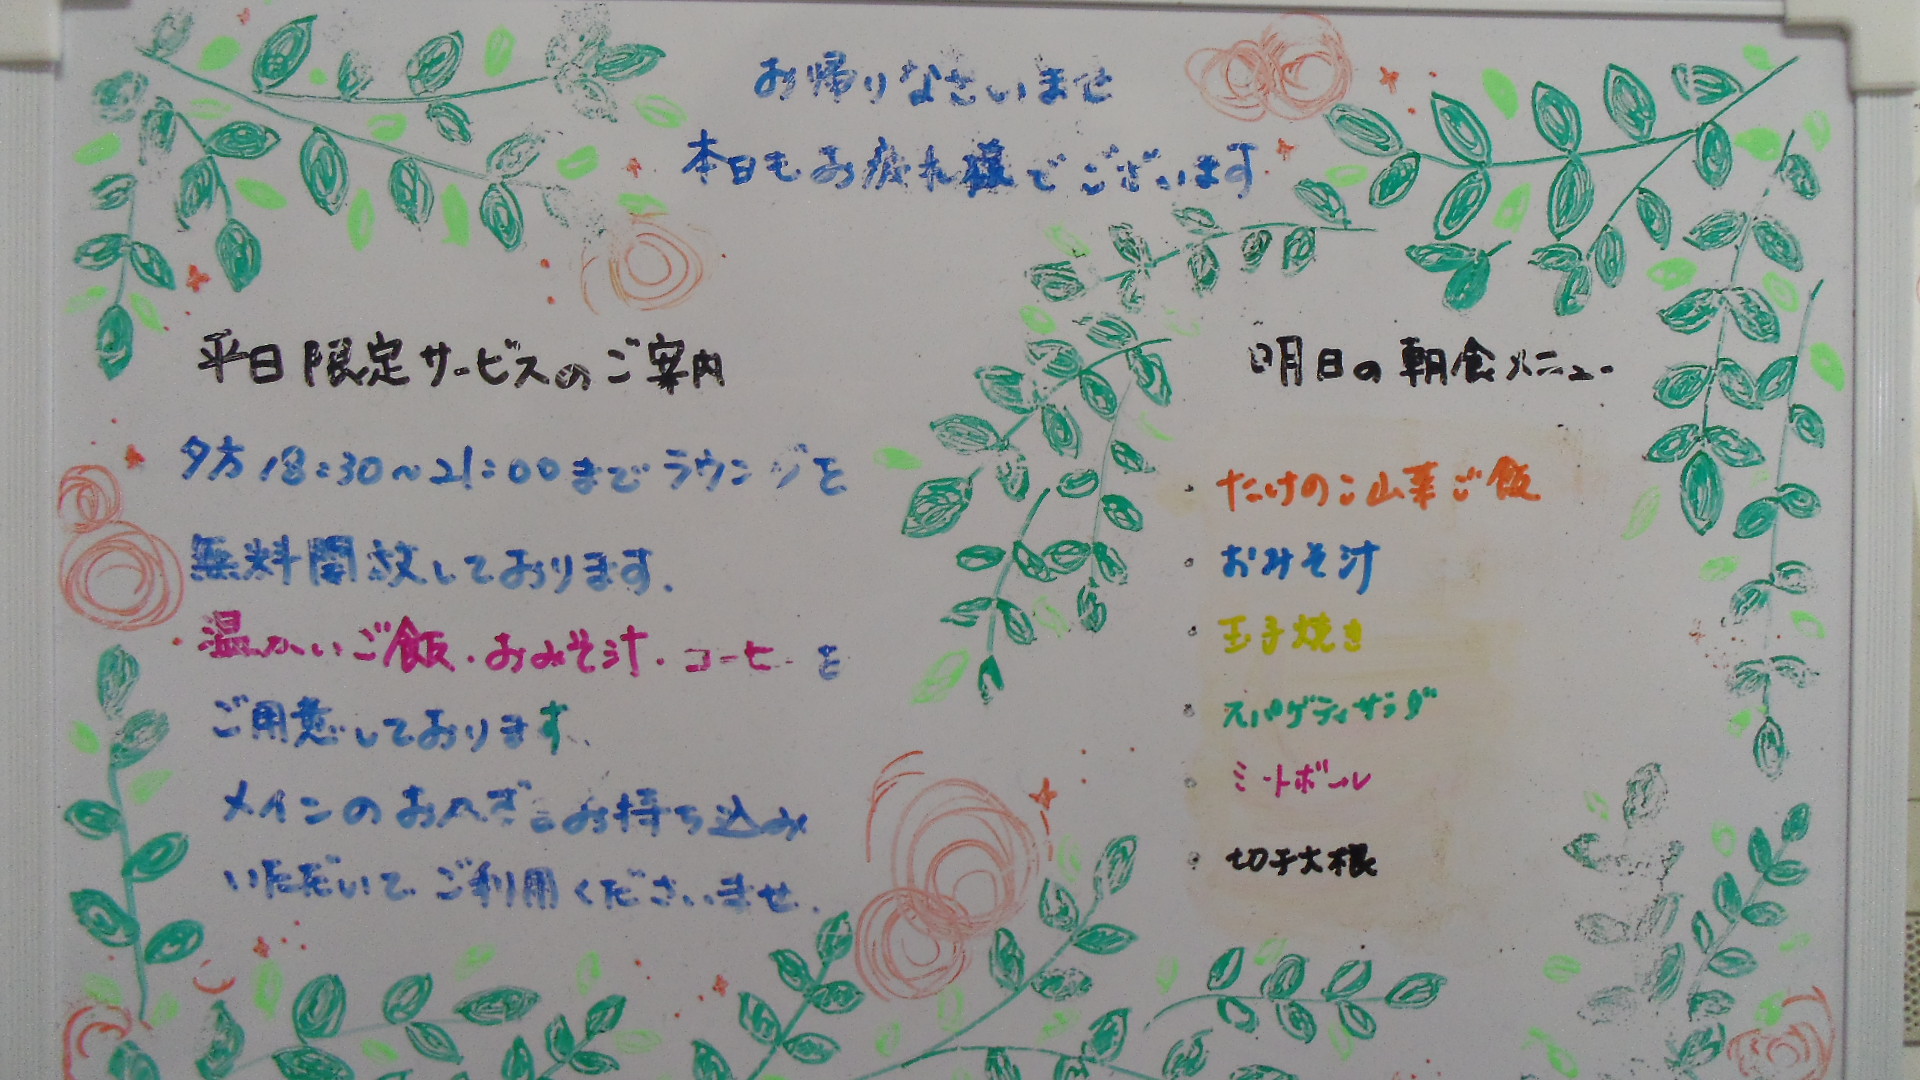 お帰りなさいませ
本日もお疲れ様でございます
平日限定サービスのご案内
夕方18:30～21:00までラウンジを
無料開放しております.
温かいご飯・おみそ汁・コーヒーを
ご用意しております.
メインのおかずはお持ち込み
いただいてご利用くださいませ.
明日の朝食メニュー
・たけのこ山菜ご飯
・おみそ汁
・玉子焼き
・スパゲティサラダ
・ミートボール
・切干大根